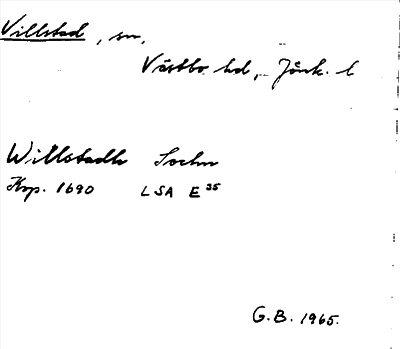 Villstad, sn,
Västbo hd, Jönk. l
Willstadh Sochn
Kop. 1690 LSA E 35
G.B. 1965.